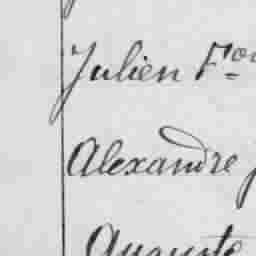 Julien Fçoi
Alexandre
Auguste